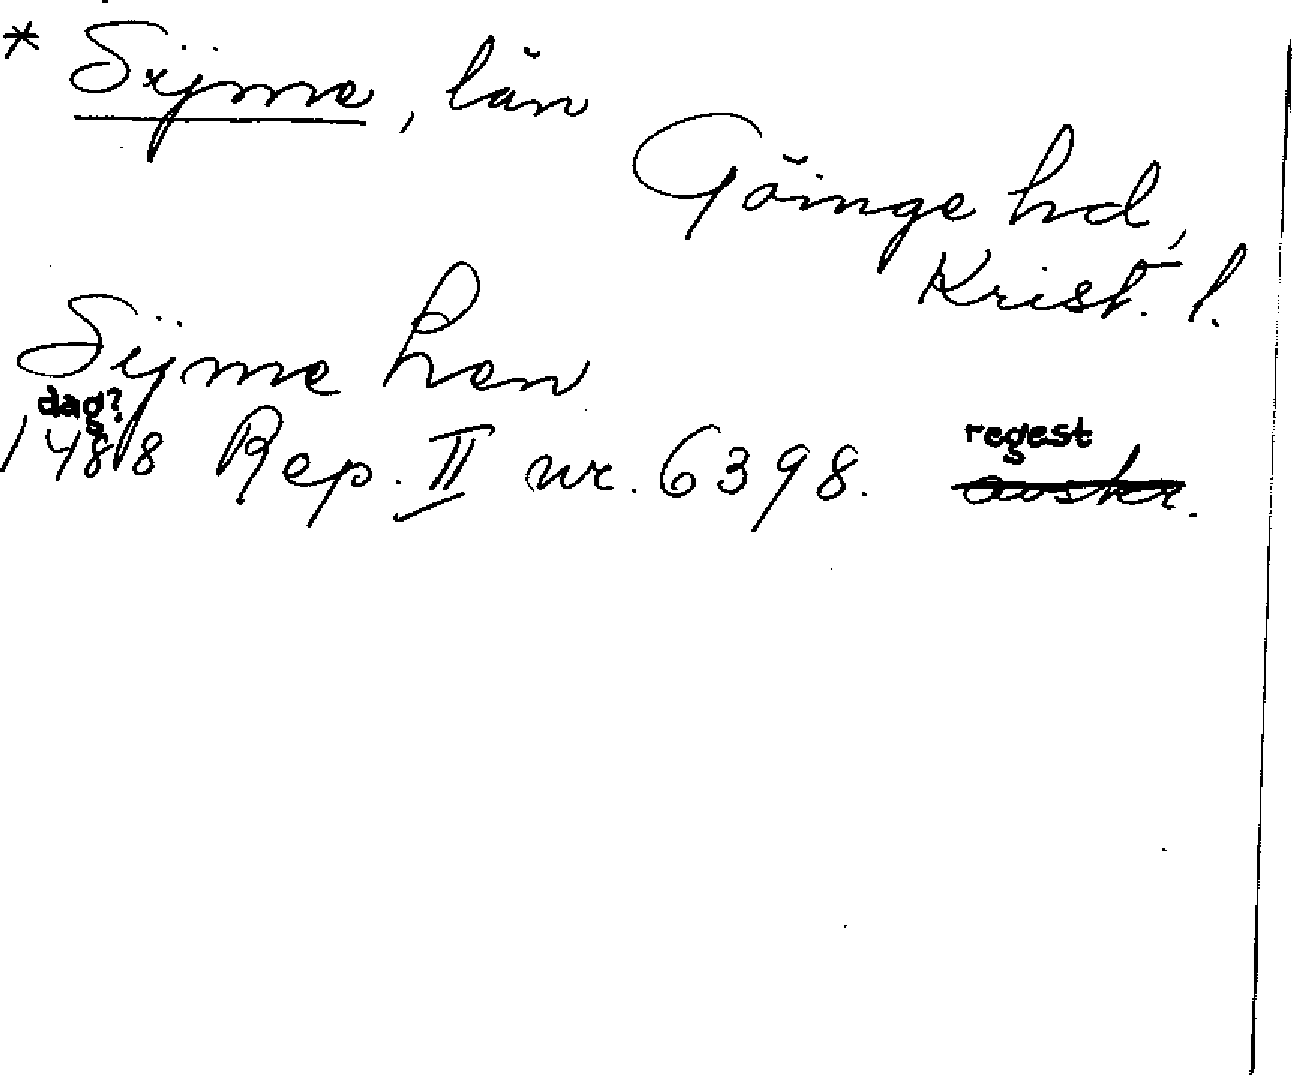 * Sijme, län
Göinge hd,
Krist. l.
Sijme len
dag?
1488 Rep. II nr. 6398. regest
avskr.